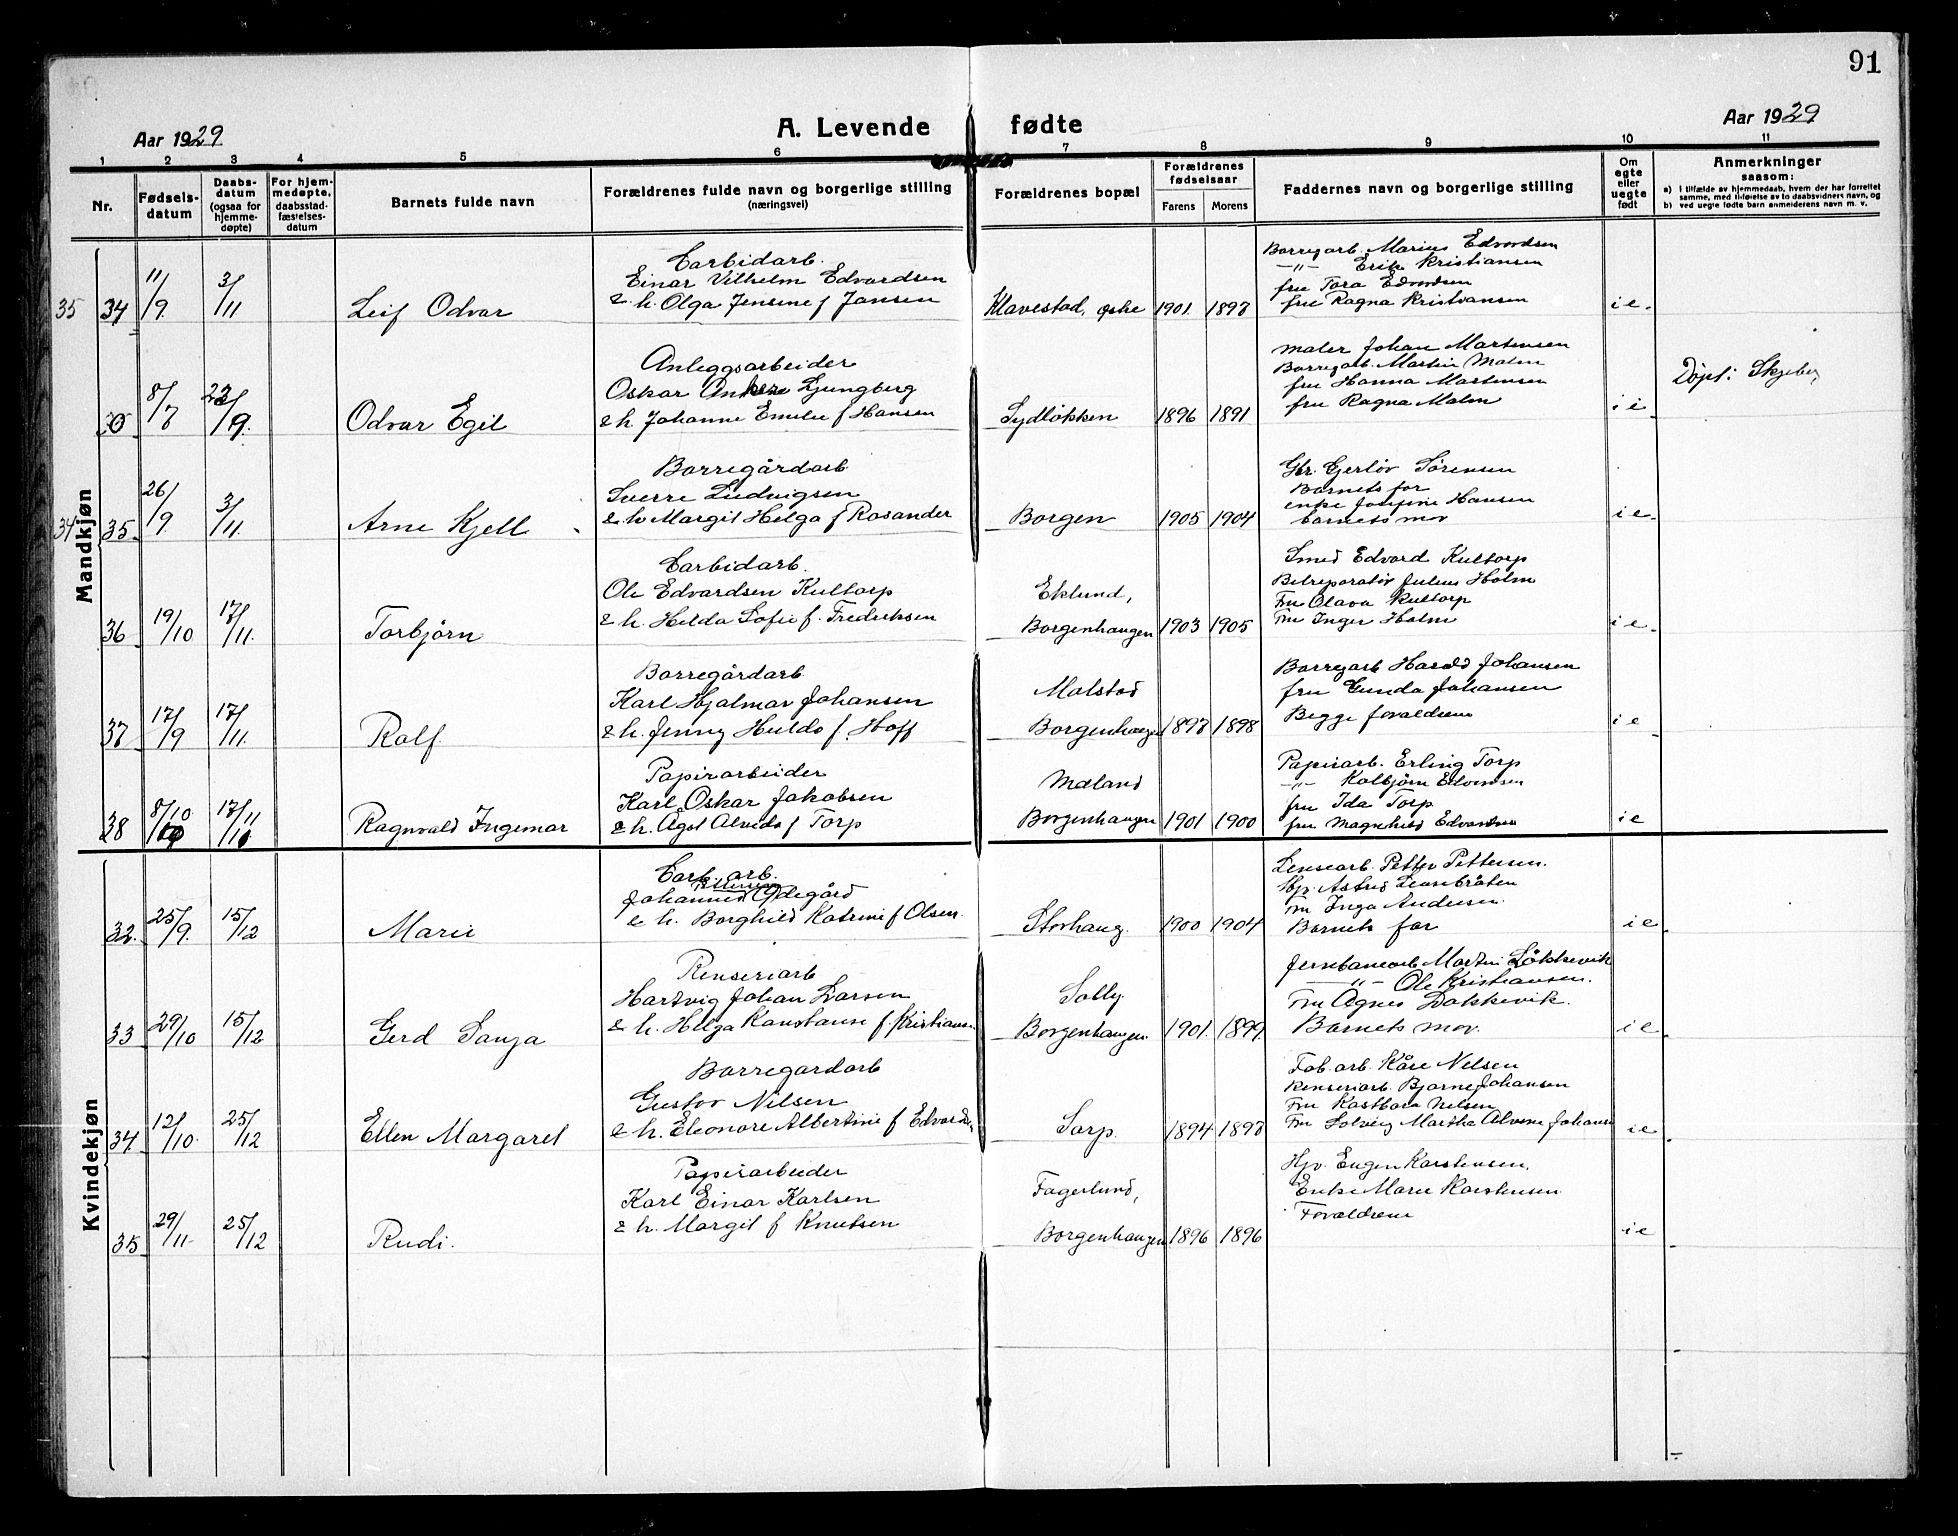 91
Aar 1929
A. Levende fødte
Aar 1929
1 2 3 4 5 6 7 8 9 10 11
Nr.
Fødsels-
datum
Daabs-
datum
(ogsaa for
hjemme-
døpte)
For hjem-
medøpte,
daabsstad-
fæstelses-
datum
Barnets fulde navn
Forældrenes fulde navn og borgerlige stilling
(næringsvei)
Forældrenes bopæl
Forældrenes
fødselsaar
Farens Morens
Faddernes navn og borgerlige stilling
Om
egte
eller
uegte
født
Anmerkninger
saasom:
a) i tilfælde av hjemmedaab, hvem der har forrettet
samme, med tilføielse av to daabsvidners navn, og
b) ved uegte fødte barn anmelderens navn m. v.
Mandkjøn
35 34 11/9 3/11 Leif Odvar
Carbidarb.
Einar Vilhelm Edvardsen
& h. Olga Jensine f Jansen
Klavestad, 1901. 1897
Borregarb. Marius Edvardsen
—"— Erik Kristiansen
fru Tora Edvardsen
fru Ragna Kristiansen
i e.
8/7 22/9. Odvar Egil
Anleggsarbeider
Oskar Ljungberg
& h Johanne Emilie f Hansen
Sydløkken 1896 1891
maler Johan Martensen
Borregarb. Martin Malm
fru Hanna Martensen
fru Ragna Malm
i e
Døpt: Skjeberg
34 35 26/9 3/11. Arne Kjell
Borregårdarb.
Sverre Ludvigsen
& h Margit Helga f Rosander
Borgen 1905 1904
Gbr. Gerløv Sørensen
Barnets far
enke Josefine Hansen
barnets mor
i e.
36 19/10 17/11. Torbjørn
Carbidarb.
Ole Edvardsen Kultorp
& h. Helda Sofie f. Fredriksen
Eklund,
Borgenhaugen 1903 1905
Smed Edvard Kultorp
Bilreparatør Julius Holm
Fru Olava Kultorp
Fru Inger Holm
i e.
37 17/9 17/11. Rolf.
Borregårdarb.
Karl Hjalmar Johansen
& h. Jenny Hulda f. Hoff
Molstad
Borgenhaugen 1897 1898
Borregarb Harald Johansen
fru Gunda Johansen
Begge foreldrene
i e
38 8/10 17/11 Ragnvald Ingemar
Papirarbeider
Karl Oskar Jakobsen
& h. Agot Alvida f Torp
Mæland
Borgenhaugen 1901 1900
Papirarb. Erling Torp
—"— Kolbjørn Edvardsen
fru Ida Torp
fru Magnhild Edvardsen
i e
Kvindekjøn
32. 25/9. 15/12 Marie
Carb. arb.
Pettersen
Johannes Ødegård
& h. Borghild Katrine f Olsen.
Storhaug. 1900 1904
Lensearb. Petter Pettersen.
Hp. Astrid Lensebråten
Fru Inga Andersen.
Barnets far
i e
33 29/10 15/12 Gerd Sonja
Renseriarb
Hartvig Johan Larsen
& h. Helga Konstanse f. Kristians
Solly
Borgenhaugen. 1901. 1899
Jernbanearb Martin Løkkevik
—"— Ole Kristiansen.
Fru Agnes
Barnets mor.
i e
34 12/10. 25/12 Ellen Margaret
Borregårdarb
Gustav Nilsen
& h. Eleonore Albertine f Edvards.
Sarp. 1894 1897
Fab. arb. Kåre Nilsen
Renseriarb. Bjarne Johansen
Fru Nilsen
Fru Solveig Martha Alvine Johans
i e
35 29/11. 25/12 Rudi.
Papirarbeider
Karl Einar Karlsen
& h. Margit f Knutsen
Fagerlund,
Borgenhaugen 1896 1896
Hjv. Eugen Karstensen.
Enke Marie Karstensen
Forældrene
i e